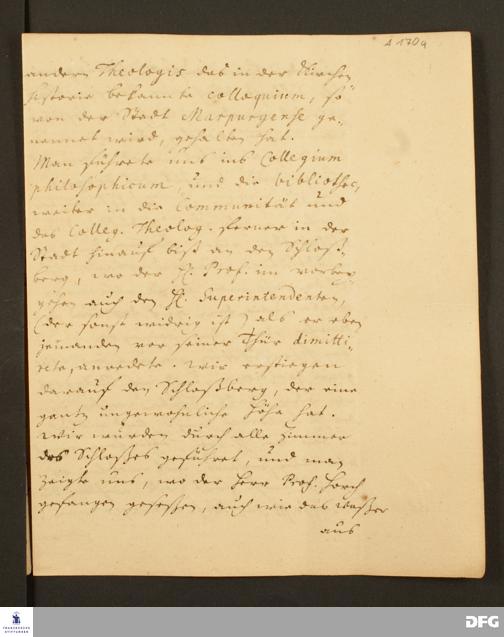 A 170a
andern Theologis das in der Kirchen
Historie bekannte colloquium, so
von der Stadt Marpurgense ge-
nennet wird, gehalten hat.
Man führete uns ins Collegium
philosophicum, und die bibliothec,
weiter in die Communität und
das Colleg. Theolog. ferner in der
Stadt hinauf biß an den Schloß-
berg, wo der H. Prof. im vorbey-
gehen auch den H. Superintendenten,
(der sonst widrig ist) als er eben
jemanden vor seiner Thür dimitti-
rete, anredete. Wir erstiegen
darauf den Schloßberg, der eine
gantz ungewohnliche Höhe hat.
Wir wurden durch alle Zimmer
des Schloßes geführet, und man
zeigte uns, wo der Herr Prof. Horch
gefangen geseßen, auch wie das waßer
aus
FRANCKESCHE
STIFTUNGEN
DFG